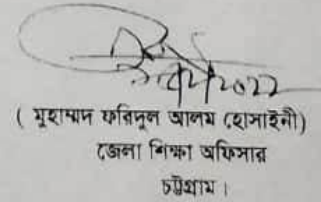 ( মুহাম্মদ ফরিদুল আলম (হোসাইনী)
জেলা শিক্ষা অফিসার
চট্টগ্রাম।